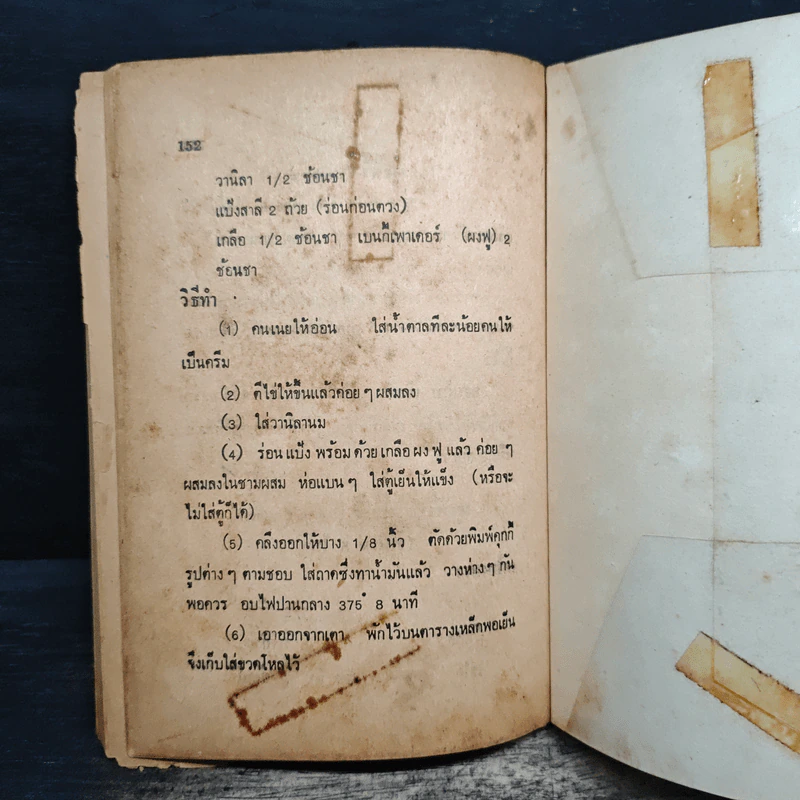 152
วานิลา 1/2 ช้อนชา
แป้งสาลี 2 ถ้วย (ร่อนก่อนตวง)
เกลือ 1/2 ช้อนชา เบนกิ้เพาเดอร์ (ผงฟู) 2
ช้อนชา
วิธีทำ
(1) คนเนยให้อ่อน ใส่น้ำตาลทีละน้อยคนให้
เป็นครีม
(2) ตีไข่ให้ขึ้นแล้วค่อย ๆ ผสมลง
(3) ใส่วานิลานม
(4) ร่อนแป้ง พร้อมด้วยเกลือ ผงฟู แล้ว ค่อย ๆ
ผสมลงในชามผสม ห่อแบน ๆ ใส่ตู้เย็นให้แข็ง (หรือจะ
ไม่ใส่ตู้ก็ได้)
(5) คลึงออกให้บาง 1/8 นิ้ว ตัดด้วยพิมพ์คุกกี้
รูปต่าง ๆ ตามชอบ ใส่ถาดซึ่งทาน้ำมันแล้ว วางห่าง ๆ กัน
พอควร อบไฟปานกลาง 375° 8 นาที
(6) เอาออกจากเตา พักไว้บนตารางเหล็กพอเย็น
จึงเก็บใส่ขวดโหลไว้